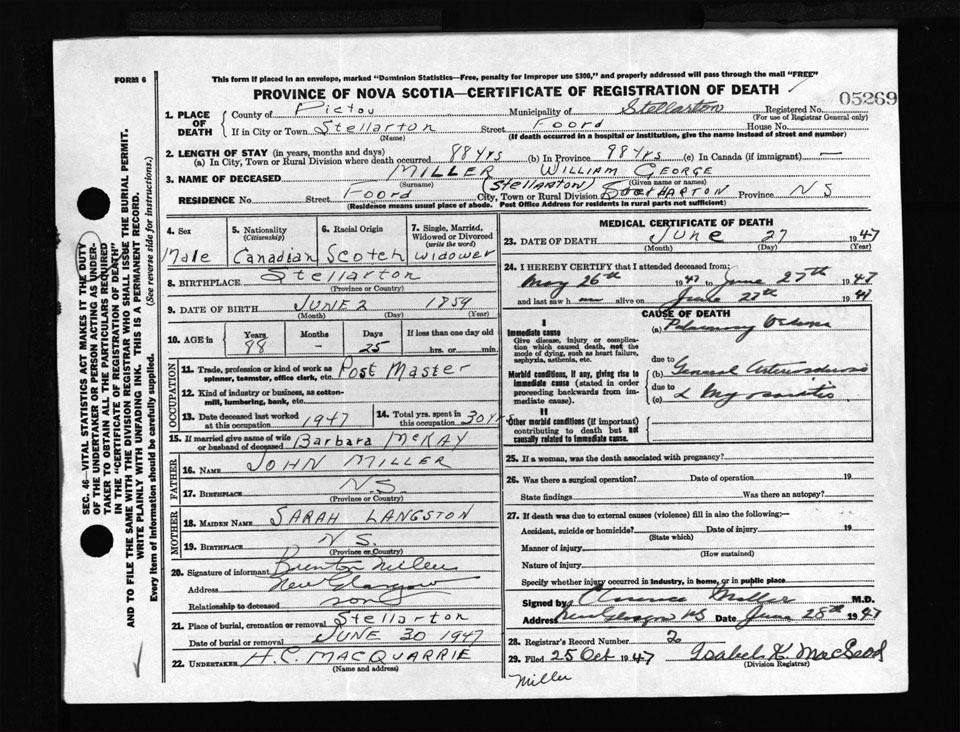 This form if placed in an envelope, marked "Dominion Statistics—Free, penalty for improper use $300," and properly addressed will pass through the mail "FREE"
FORM 6
PROVINCE OF NOVA SCOTIA—CERTIFICATE OF REGISTRATION OF DEATH
05269
1. PLACE OF DEATH County of Pictou Municipality of Stellarton Registered No.
(For use of Registrar General only)
If in City or Town Stellarton Street Foord House No.
(Name) (If death occurred in a hospital or institution, give the name instead of street and number)
2. LENGTH OF STAY (in years, months and days)
(a) In City, Town or Rural Division where death occurred 88 yrs (b) In Province 88 yrs (c) In Canada (if immigrant) —
3. NAME OF DECEASED MILLER WILLIAM GEORGE
(Surname) (Given name or names)
(Stellarton)
RESIDENCE No. Street Foord City, Town or Rural Division Province NS
(Residence means usual place of abode. Post Office Address for residents in rural parts not sufficient)
4. Sex 5. Nationality (Citizenship) 6. Racial Origin 7. Single, Married, Widowed or Divorced (write the word)
Male Canadian Scotch Widower
8. BIRTHPLACE Stellarton
(Province or Country)
9. DATE OF BIRTH JUNE 2 1859
(Month) (Day) (Year)
10. AGE in Years Months Days If less than one day old
88 - 25 hrs. or min.
OCCUPATION
11. Trade, profession or kind of work as spinner, teamster, office clerk, etc. Post Master
12. Kind of industry or business, as cotton-mill, lumbering, bank, etc.
13. Date deceased last worked at this occupation 1947 14. Total yrs. spent in this occupation 30 yrs
15. If married give name of wife or husband of deceased Barbara McKAY
FATHER
16. NAME JOHN MILLER
17. BIRTHPLACE N.S.
(Province or Country)
MOTHER
18. MAIDEN NAME SARAH LANGSTON
19. BIRTHPLACE N S.
(Province or Country)
20. Signature of informant Brenton Miller
Address New Glasgow
Relationship to deceased son
21. Place of burial, cremation or removal Stellarton
Date of burial or removal JUNE 30 1947
22. UNDERTAKER H.C. MACQUARRIE
(Name and address)
MEDICAL CERTIFICATE OF DEATH
23. DATE OF DEATH June 27 1947
(Month) (Day) (Year)
24. I HEREBY CERTIFY that I attended deceased from:
May 26th 1947 to June 27th 1947
and last saw h alive on June 27th 1947
CAUSE OF DEATH
I
Immediate cause
Give disease, injury or complication which caused death, not the mode of dying, such as heart failure, asphyxia, asthenia, etc.
(a) Pulmonary Oedema
due to
Morbid conditions, if any, giving rise to immediate cause (stated in order proceeding backwards from immediate cause).
(b) General Arteriosclerosis
due to
(c) & Myocarditis
II
Other morbid conditions (if important) contributing to death but not causally related to immediate cause.
25. If a woman, was the death associated with pregnancy?
26. Was there a surgical operation? Date of operation 19
State findings Was there an autopsy?
27. If death was due to external causes (violence) fill in also the following:—
Accident, suicide or homicide? Date of injury 19
(State which)
Manner of injury
(How sustained)
Nature of injury
Specify whether injury occurred in industry, in home, or in public place
Signed by Clarence Miller M.D.
Address New Glasgow NS Date June 28th 1947
28. Registrar's Record Number
29. Filed 25 Oct 1947 Isabel K. MacLeod
(Division Registrar)
Miller
SEC. 46—VITAL STATISTICS ACT MAKES IT THE DUTY
OF THE UNDERTAKER OR PERSON ACTING AS UNDER-
TAKER TO OBTAIN ALL THE PARTICULARS REQUIRED
IN THE "CERTIFICATE OF REGISTRATION OF DEATH"
AND TO FILE THE SAME WITH THE DIVISION REGISTRAR WHO SHALL ISSUE THE BURIAL PERMIT.
WRITE PLAINLY WITH UNFADING INK. THIS IS A PERMANENT RECORD.
Every item of information should be carefully supplied. (See reverse side for instructions.)